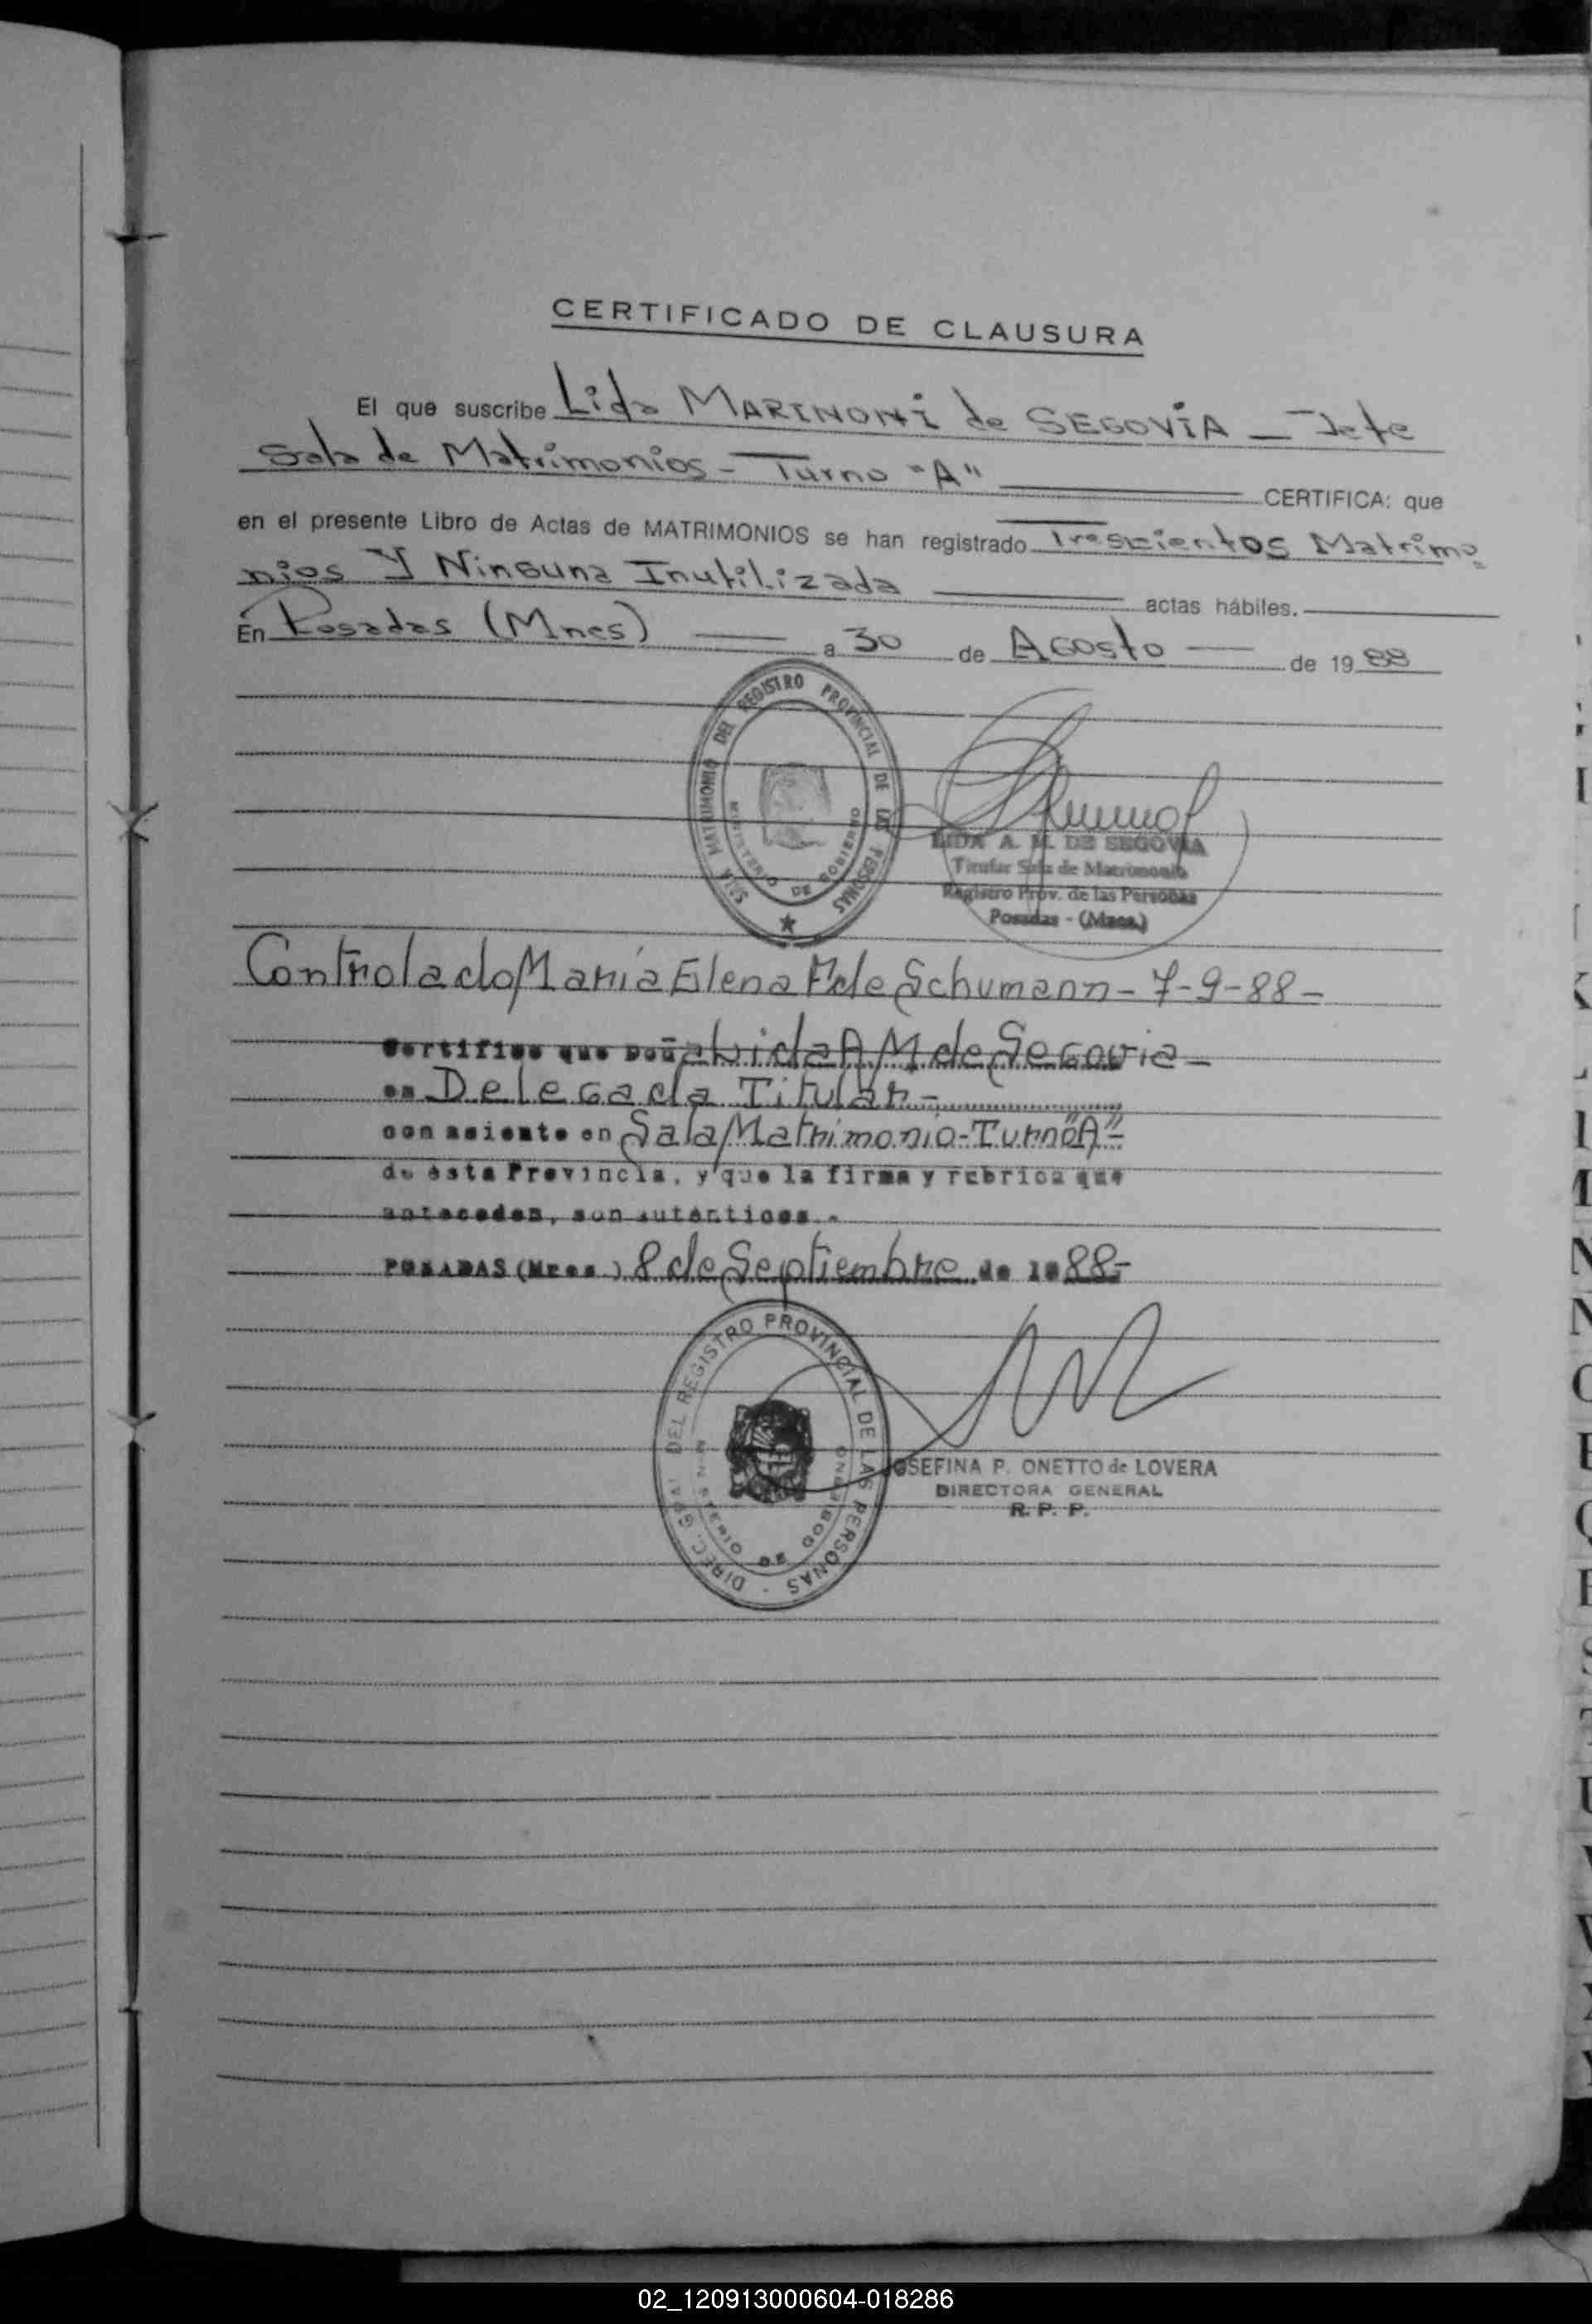 CERTIFICADO DE CLAUSURA
El que suscribe Lida MARINONi de SEGOVIA — Jefe
Sala de Matrimonios - Turno "A" CERTIFICA: que
en el presente Libro de Actas de MATRIMONIOS se han registrado Trescientos Matrimo
nios Y Ninguna Inutilizada actas hábiles.
En Posadas (Mnes) a 30 de Agosto de 1988
SALA MATRIMONIO DEL REGISTRO PROVINCIAL DE LAS PERSONAS
MINISTERIO DE GOBIERNO
LIDA A. M. DE SEGOVIA
Titular Sala de Matrimonio
Registro Prov. de las Personas
Posadas - (Mnes.)
Controlado María Elena de Schumann - 7-9-88 -
Certifico que Doña Lida A M de Segovia -
es Delegada Titular -
con asiento en Sala Matrimonio - Turno "A" -
de ésta Provincia, y que la firma y rúbrica que
anteceden, son auténticas.-
POSADAS (Mnes.) 8 de Septiembre de 1988-
DIREC. GRAL. DEL REGISTRO PROVINCIAL DE LAS PERSONAS -
MINISTERIO DE GOBIERNO
JOSEFINA P. ONETTO de LOVERA
DIRECTORA GENERAL
R. P. P.
I
K
L
M
N
O
P
Q
R
S
T
U
V
W
X
Y
02_120913000604-018286